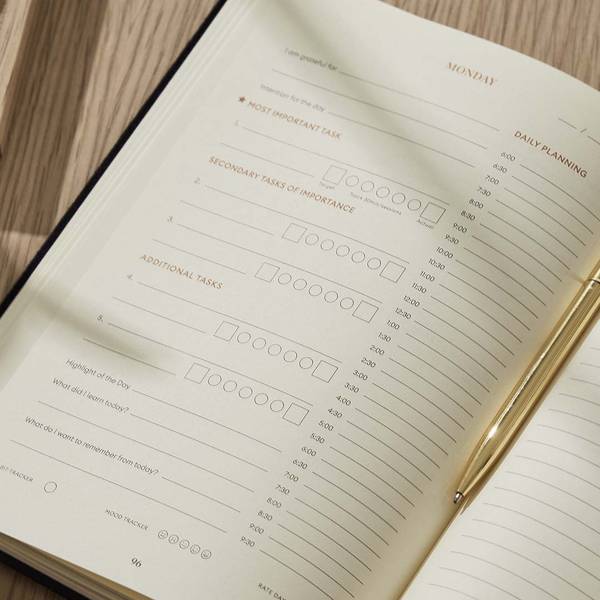 MONDAY
I am grateful for
Intention for the day
/
★ MOST IMPORTANT TASK
1.
Target
Actual
SECONDARY TASKS OF IMPORTANCE
2.
3.
ADDITIONAL TASKS
4.
5.
Highlight of the Day
What did I learn today?
What do I want to remember from today?
BIT TRACKER
MOOD TRACKER
96
DAILY PLANNING
6:00
6:30
7:00
7:30
8:00
8:30
9:00
9:30
10:00
10:30
11:00
11:30
12:00
12:30
1:00
1:30
2:00
2:30
3:00
3:30
4:00
4:30
5:00
5:30
6:00
6:30
7:00
7:30
8:00
8:30
9:00
9:30
RATE DA